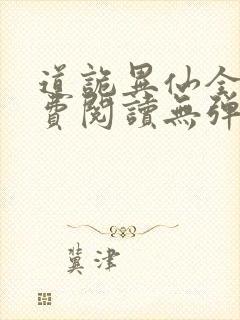 道詭異仙全
費閱讀無彈
冀津